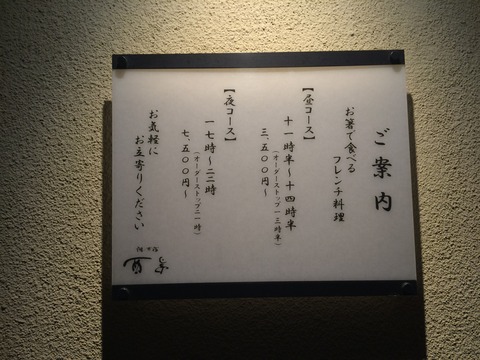 ご案内
お箸で食べる
フレンチ料理
【昼コース】
十一時半〜十四時半
(オーダーストップ一三時半)
三、五〇〇円〜
【夜コース】
一七時〜二二時
(オーダーストップ二一時)
七、五〇〇円〜
お気軽に
お立寄りください